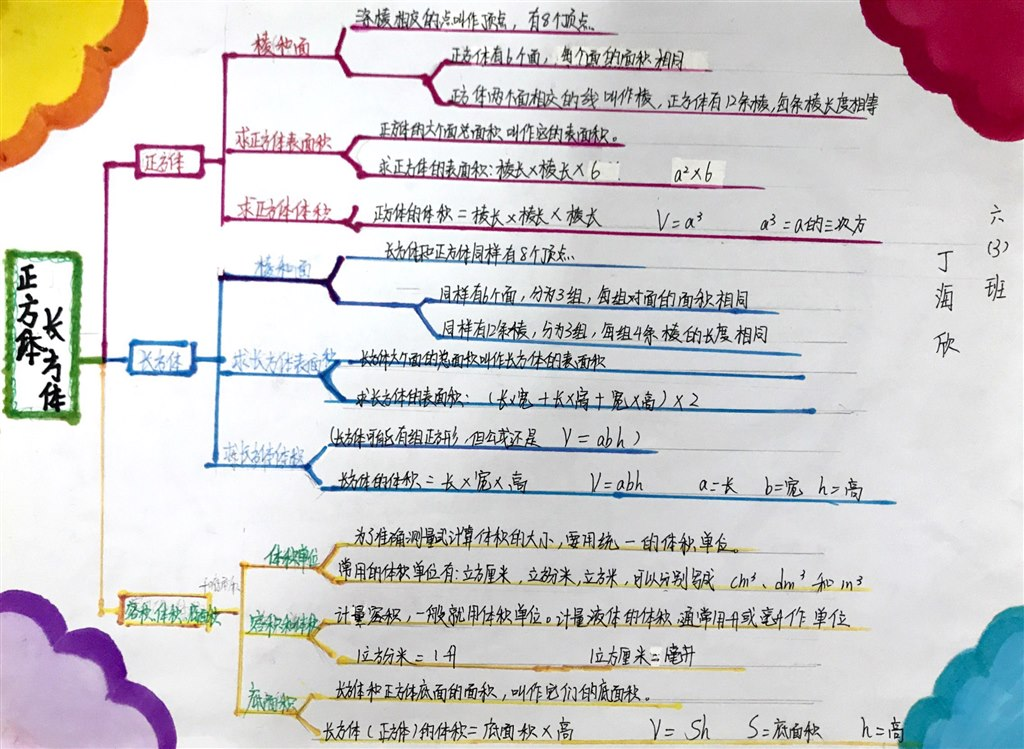 正方体
长方体
正方体
棱和面
条棱相交的点叫作顶点，有8个顶点
正方体有6个面，每个面的面积相同
正方体两个面相交的线叫作棱，正方体有12条棱，每条棱长度相等
求正方体表面积
正方体的六个面总面积叫作它的表面积。
求正方体的表面积：棱长×棱长×6 a²×6
求正方体体积
正方体的体积=棱长×棱长×棱长 V=a³ a³=a的三次方
长方体
棱和面
长方体和正方体同样有8个顶点
同样有6个面，分为3组，每组对面的面积相同
同样有12条棱，分为3组，每组4条棱的长度相同
求长方体表面积
长方体六个面的总面积叫作长方体的表面积
求长方体的表面积：(长×宽+长×高+宽×高)×2
求长方体体积
(长方体可能有组正方形，但公式还是 V=abh)
长方体的体积=长×宽×高 V=abh a=长 b=宽 h=高
容积体积、底面积
体积单位
为了准确测量或计算体积的大小，要用统一的体积单位。
常用的体积单位有：立方厘米，立方分米，立方米，可以分别写成 cm³、dm³和m³
容积和体积
计量容积，一般就用体积单位。计量液体的体积，通常用升或毫升作单位
1立方分米=1升 1立方厘米=1毫升
底面积
长方体和正方体底面的面积，叫作它们的底面积。
长方体(正方体)的体积=底面积×高 V=Sh S=底面积 h=高
六(3)班
丁海欣